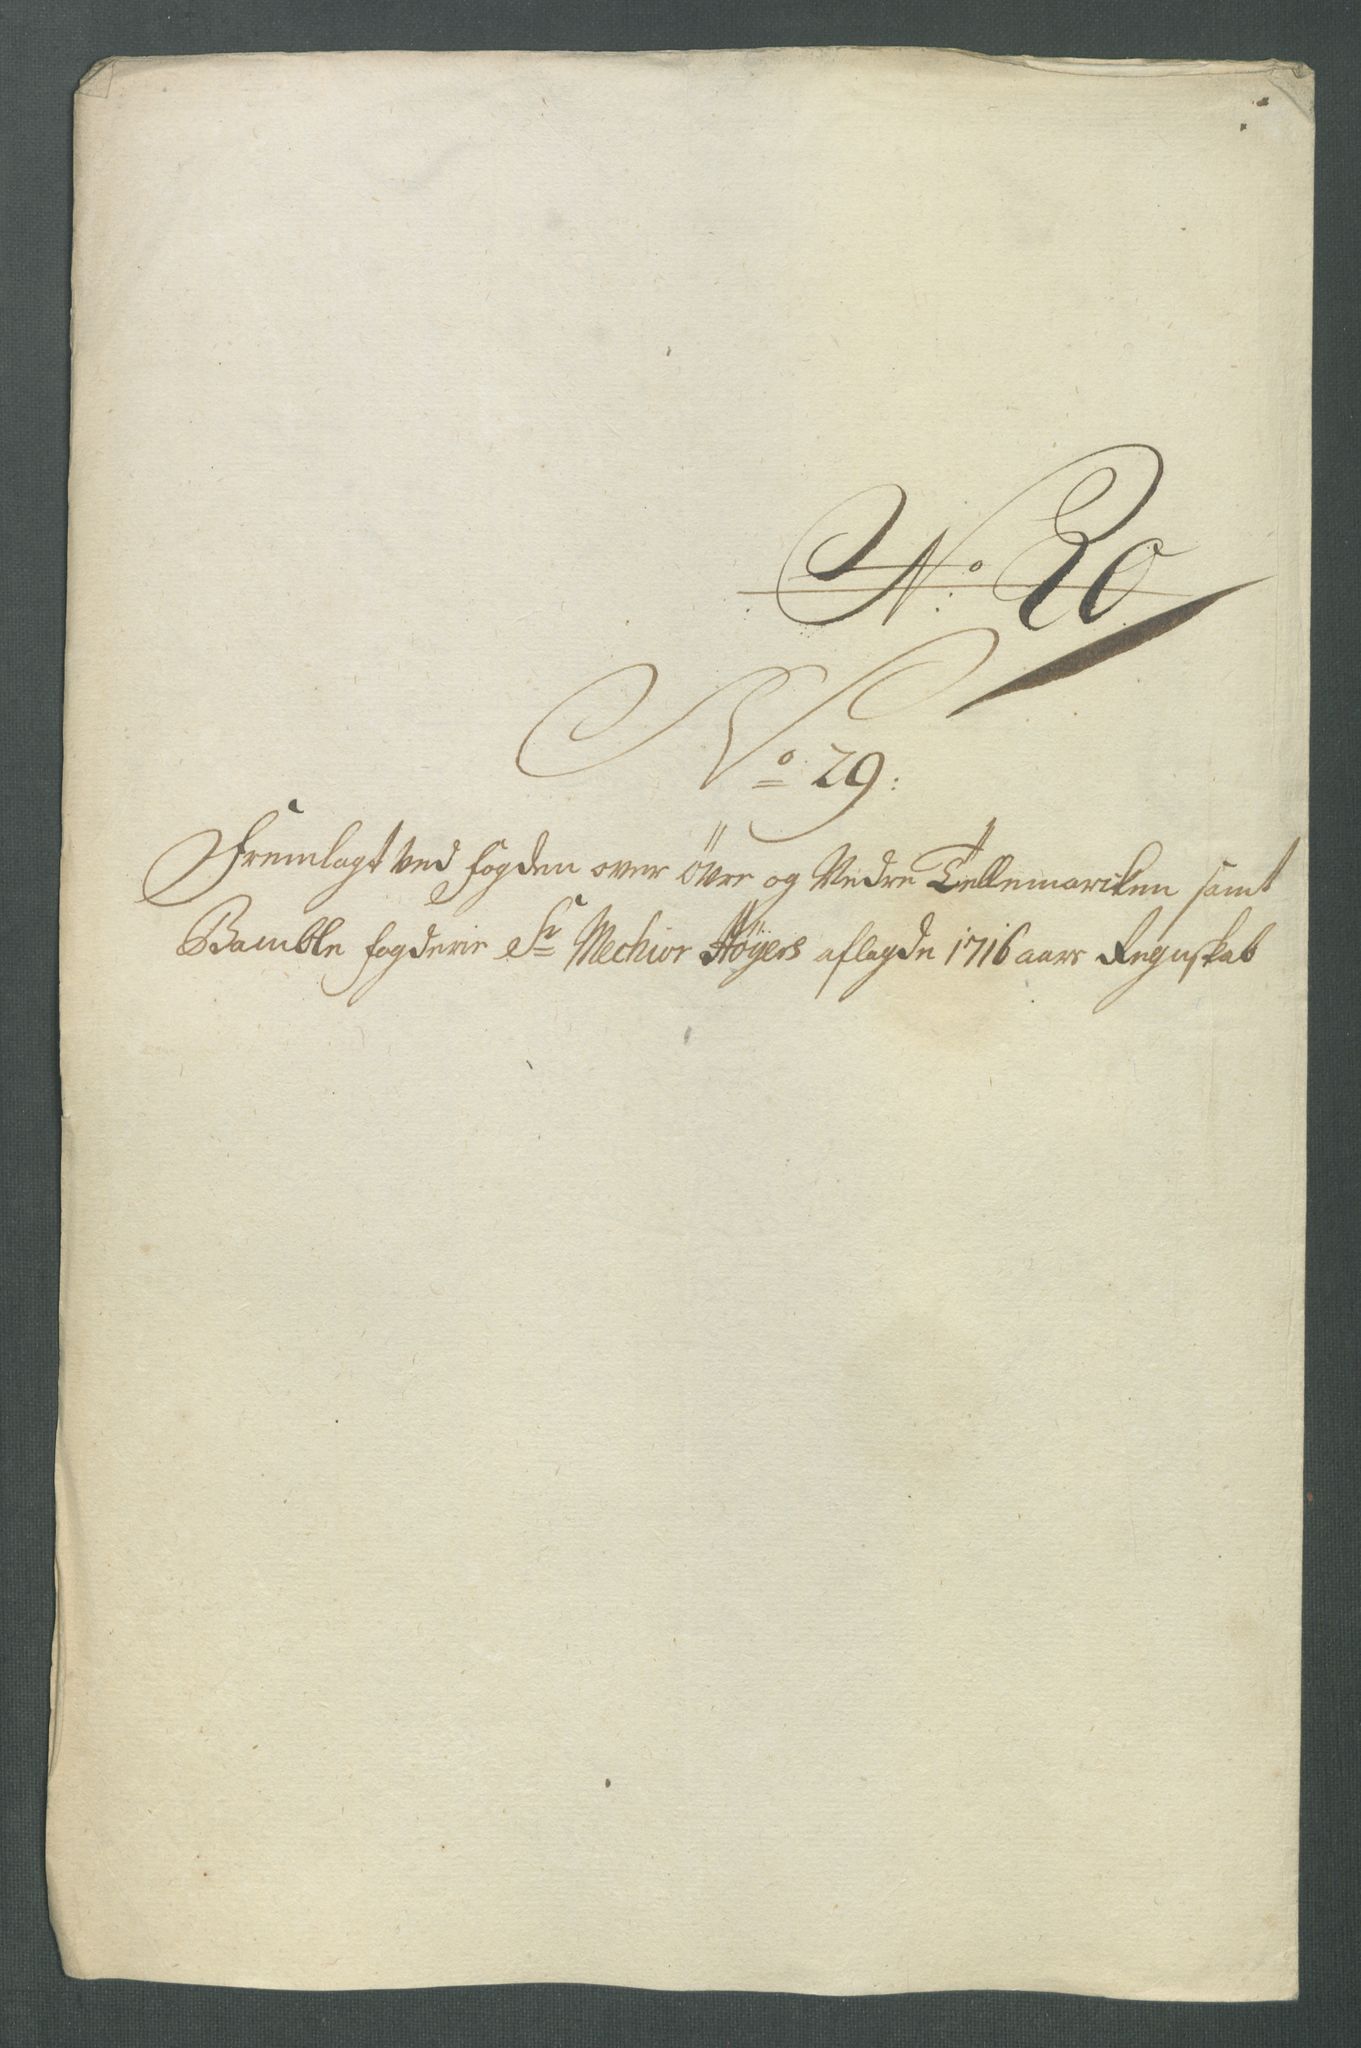 No: 20
No: 29:
Fremlagt ved fogden over Öwre og Nedre Tellemarcken samt
Bamble fogderie Sr Mechior Höyers aflagde 1716 aars Regnskab